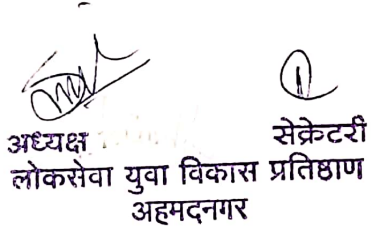 अध्यक्ष सेक्रेटरी
लोकसेवा युवा विकास प्रतिष्ठाण
अहमदनगर